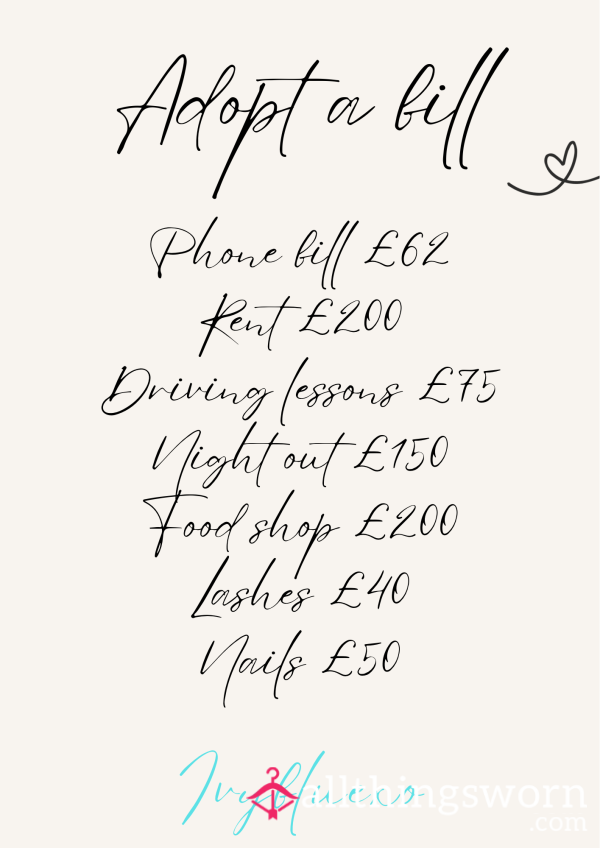 Adopt a bill
Phone bill £62
Rent £200
Driving lessons £75
Night out £150
Food shop £200
Lashes £40
Nails £50
Ivybluexo
allthingsworn
.com